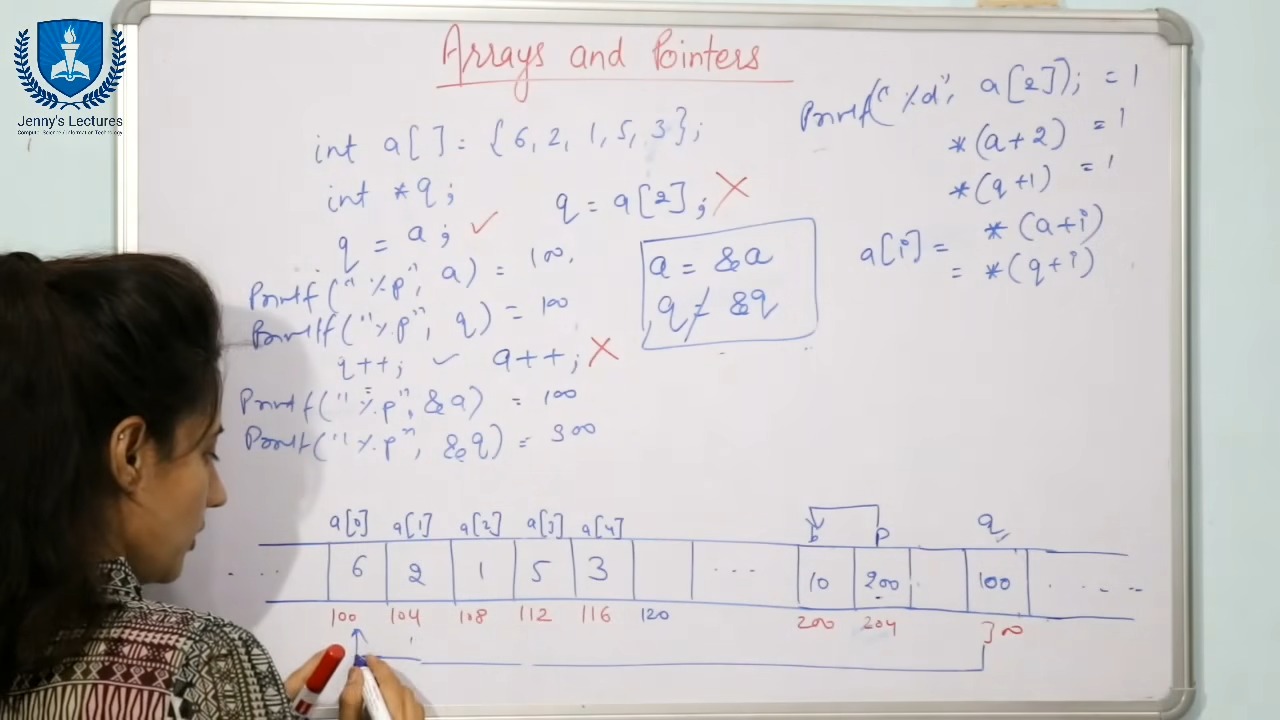 Jenny's Lectures
Computer Science/Information Technology
Arrays and Pointers
int a[] = {6, 2, 1, 5, 3};
int *q;
q = a; ✓
q = a[2]; X
Printf("%p", a) = 100.
Printf("%p", q) = 100
q++; ✓ a++; X
Printf("%p", &a) = 100
Printf("%p", &q) = 300
a = &a
q ≠ &q
Printf("%d", a[2]); = 1
*(a+2) = 1
*(q+1) = 1
a[i] = *(a+i)
= *(q+i)
a[0] a[1] a[2] a[3] a[4] b p q
6 2 1 5 3 ... 10 200 100
100 104 108 112 116 120 200 204 300